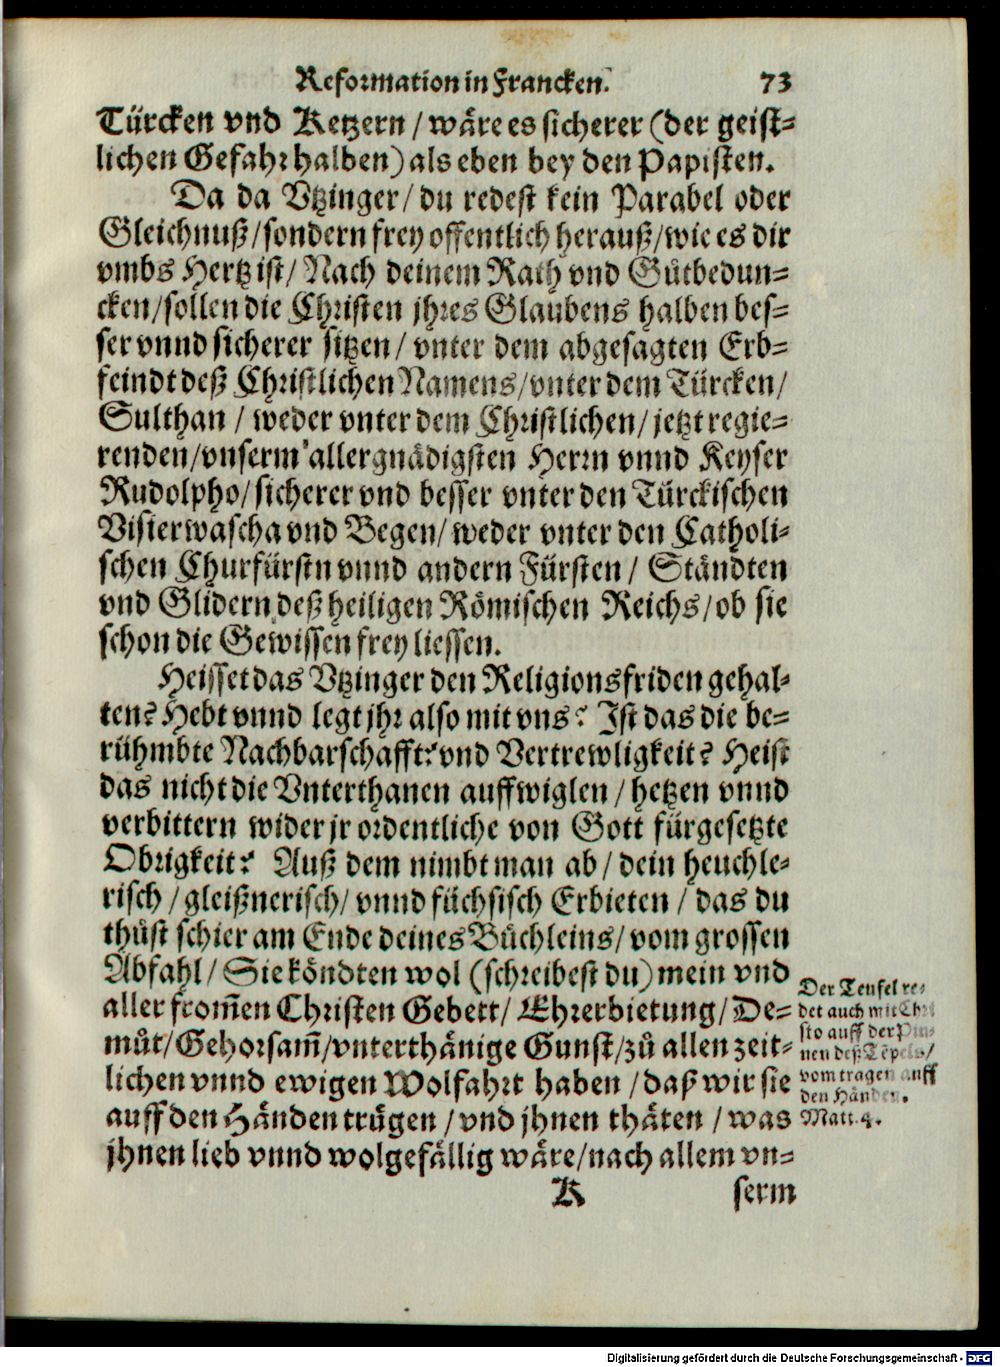 Reformation in Francken. 73
Türcken vnd Ketzern / wäre es sicherer (der geist=
lichen Gefahr halben) als eben bey den Papisten.
Da da Vtzinger / du redest kein Parabel oder
Gleichnuß / sondern frey offentlich herauß / wie es dir
vmbs Hertz ist / Nach deinem Rath vnd Gůtbedun=
cken / sollen die Christen jhres Glaubens halben bes=
ser vnnd sicherer sitzen / vnter dem abgesagten Erb=
feindt deß Christlichen Namens / vnter dem Türcken /
Sulthan / weder vnter dem Christlichen / jetzt regie=
renden / vnserm allergnädigsten Herrn vnnd Keyser
Rudolpho / sicherer vnd besser vnter den Türckischen
Visierwascha vnd Begen / weder vnter den Catholi=
schen Churfürstn vnnd andern Fürsten / Ständten
vnd Glidern deß heiligen Römischen Reichs / ob sie
schon die Gewissen frey liessen.
Heisset das Vtzinger den Religionsfriden gehal=
ten? Hebt vnnd legt jhr also mit vns? Ist das die be=
rühmbte Nachbarschafft? vnd Vertrewligkeit? Heist
das nicht die Vnterthanen auffwiglen / hetzen vnnd
verbittern wider jr ordentliche von Gott fürgesetzte
Obrigkeit? Auß dem nimbt man ab / dein heuchle=
risch / gleißnerisch / vnnd füchsisch Erbieten / das du
thůst schier am Ende deines Bůchleins / vom grossen
Abfahl / Sie köndten wol (schreibest du) mein vnd
aller from̃en Christen Gebett / Ehrerbietung / De=
můt / Gehorsam̃ / vnterthänige Gunst / zů allen zeit=
lichen vnnd ewigen Wolfahrt haben / daß wir sie
auff den Händen trůgen / vnd jhnen thäten / was
jhnen lieb vnnd wolgefällig wäre / nach allem vn=
Der Teufel re=
det auch mit Chri
sto auff der
nen deß Tẽpels /
vom tragen auff
den Händen.
Matt. 4.
K serm
Digitalisierung gefördert durch die Deutsche Forschungsgemeinschaft - DFG